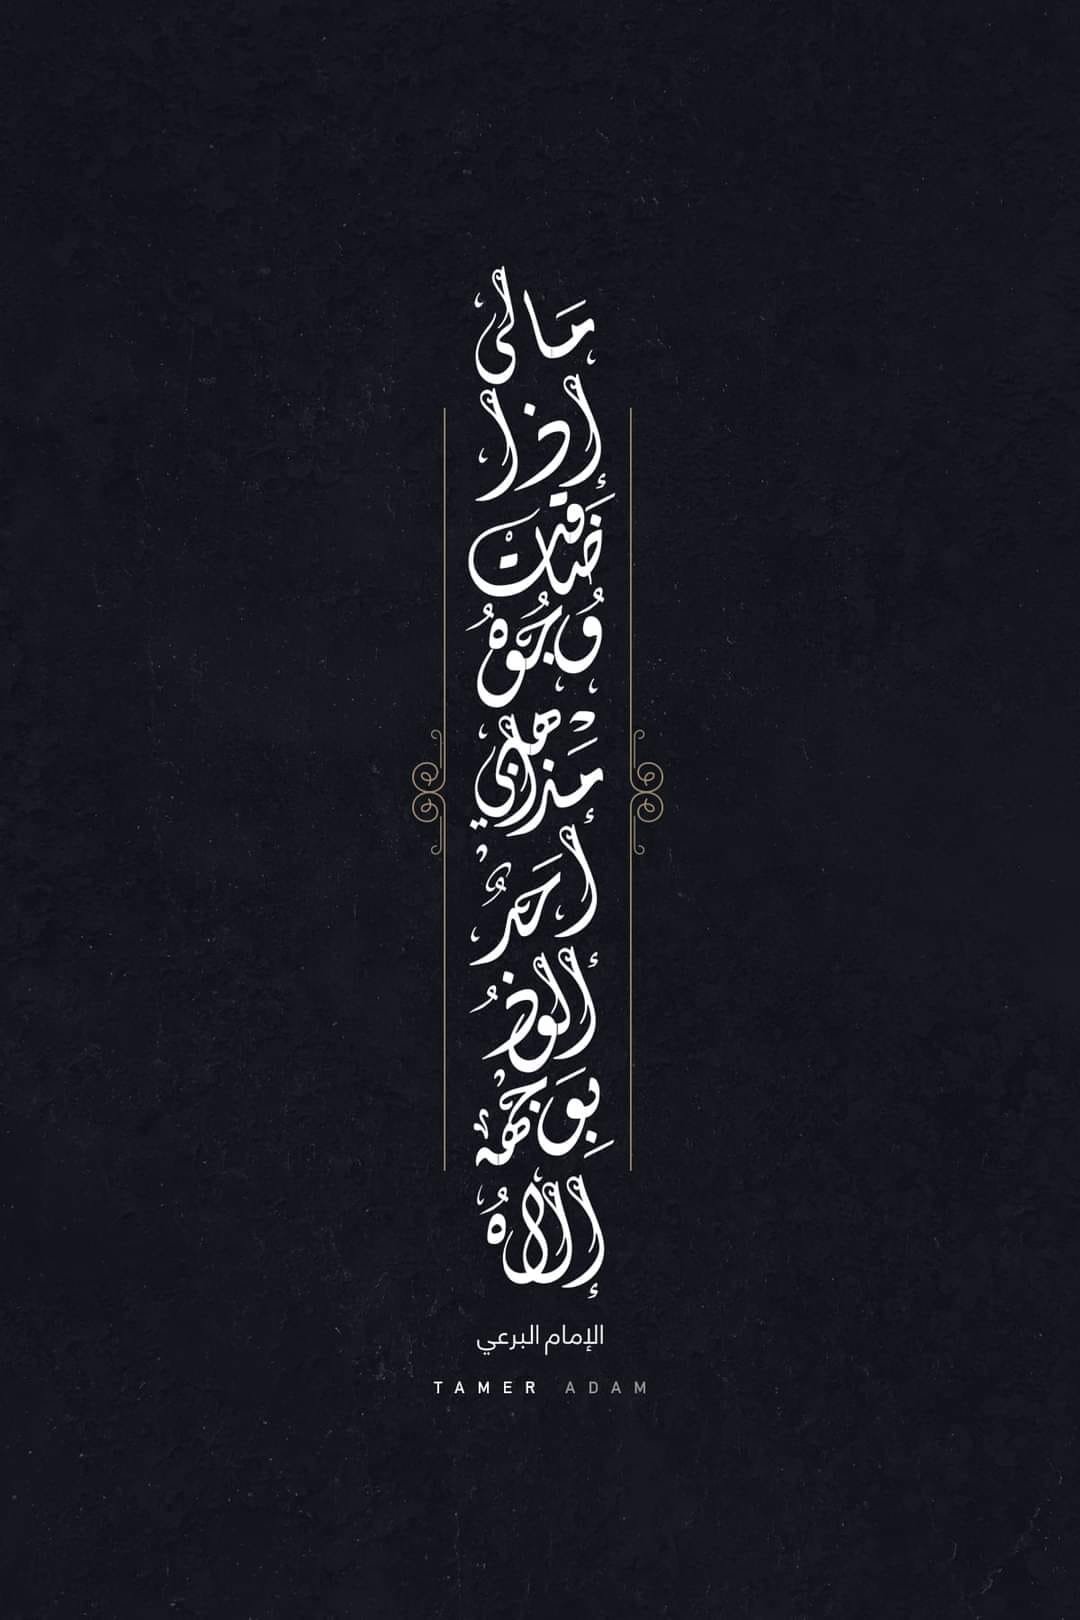 مَالى
إذا
ضَاقت
وُجُوهُ
مَذاهبي
أحَدٌ
ألوذُ
بِوَجْهه
إلاهُ
الإمام البرعي
TAMER ADAM